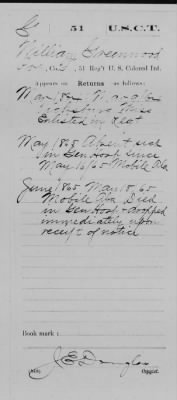 G 51 U.S.C.T.
William Greenwood
Co. , 51 Reg't U. S. Colored Inf.
Appears on Returns as follows:
Vicksburg Miss
Enlisted in Regt
May 1865 Absent sick
in Gen Hosp since
May 16/65 Mobile Ala
June 1865, May 18/65
Mobile Ala Died
in Gen Hosp dropped
immediately upon
receipt of notice
Book mark:
J E Douglas
Copyist.